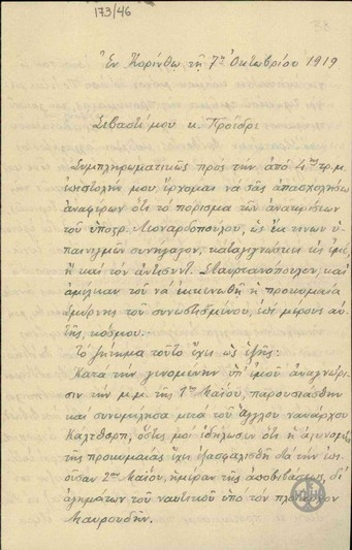 173/46
Ἐν Κορίνθῳ τῇ 7ῃ Ὀκτωβρίου 1919
Σεβαστέ μου κ. Πρόεδρε
Συμπληρωματικῶς πρὸς τὴν ἀπὸ 4ης τρ. μ.
ἐπιστολήν μου, ἔρχομαι νὰ σᾶς ἀπασχολήσω
ἀναφέρων ὅτι τὸ πόρισμα τῶν ἀνακρίσεων
τοῦ ὑποστρ. Μοναρδοπούλου, ὡς ἐκ τινων ὑ-
παινιγμῶν συνήγαγον, καταλογίζεται εἰς ἐμὲ
ἢ καὶ τὸν ἀντισυντ. Σταυριανόπουλον, καὶ
ἀμέλειαν τοῦ νὰ ἐκκενωθῇ ἡ προκυμαία
Σμύρνης τοῦ συνωστισμένου, ἐπὶ μέρους αὐ-
τῆς, κόσμου.
Τὸ ζήτημα τοῦτο ἔχει ὡς ἑξῆς:
Κατὰ τὴν γενομένην ὑπ' ἐμοῦ ἀναγνώρι-
σιν τὴν μ.μ. τῆς 1ης Μαΐου, παρουσιάσθην
καὶ συνωμίλησα μετὰ τοῦ Ἄγγλου ναυάρχου
Κάλθορπ, ὅστις μοὶ ἐδήλωσεν ὅτι ἡ ἀστυνομία
τῆς προκυμαίας ἔχει ἐξασφαλισθῇ διὰ τὴν ἐπι-
οῦσαν 2αν Μαΐου, ἡμέραν τῆς ἀποβιβάσεως, δι'
ἀγημάτων τοῦ ναυτικοῦ ὑπὸ τὸν πλοίαρχον
Μαυρουδῆν.